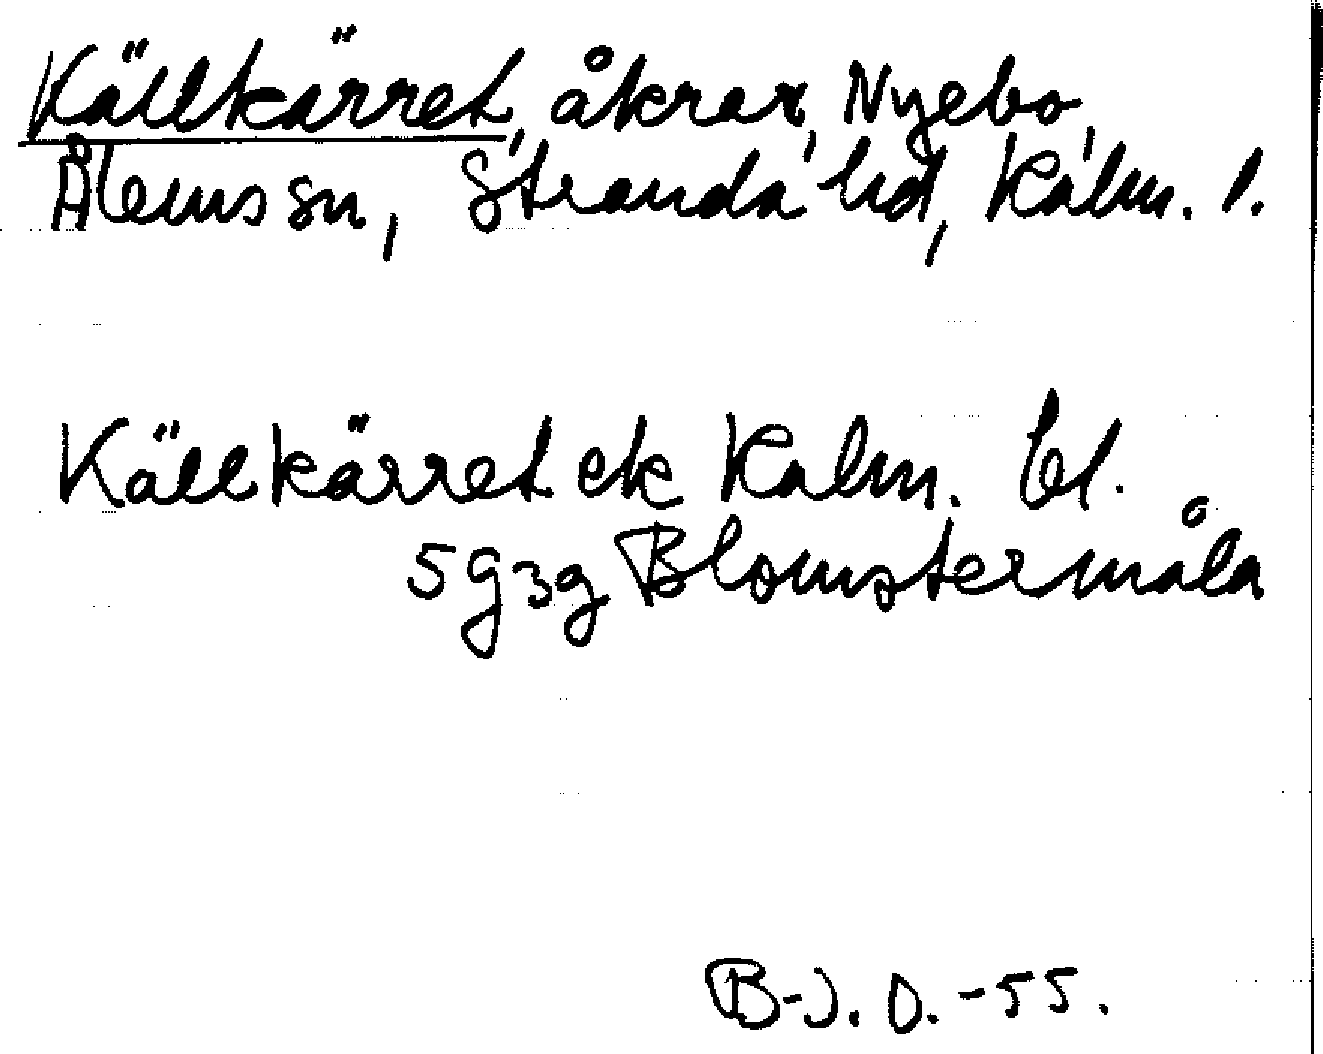 Källkärret, åkrar, Nyebo,
Ålems sn, Stranda hd, Kalm. l.
Källkärret ek Kalm. bl.
5 G 3 g Blomstermåla
B-J. O. -55.